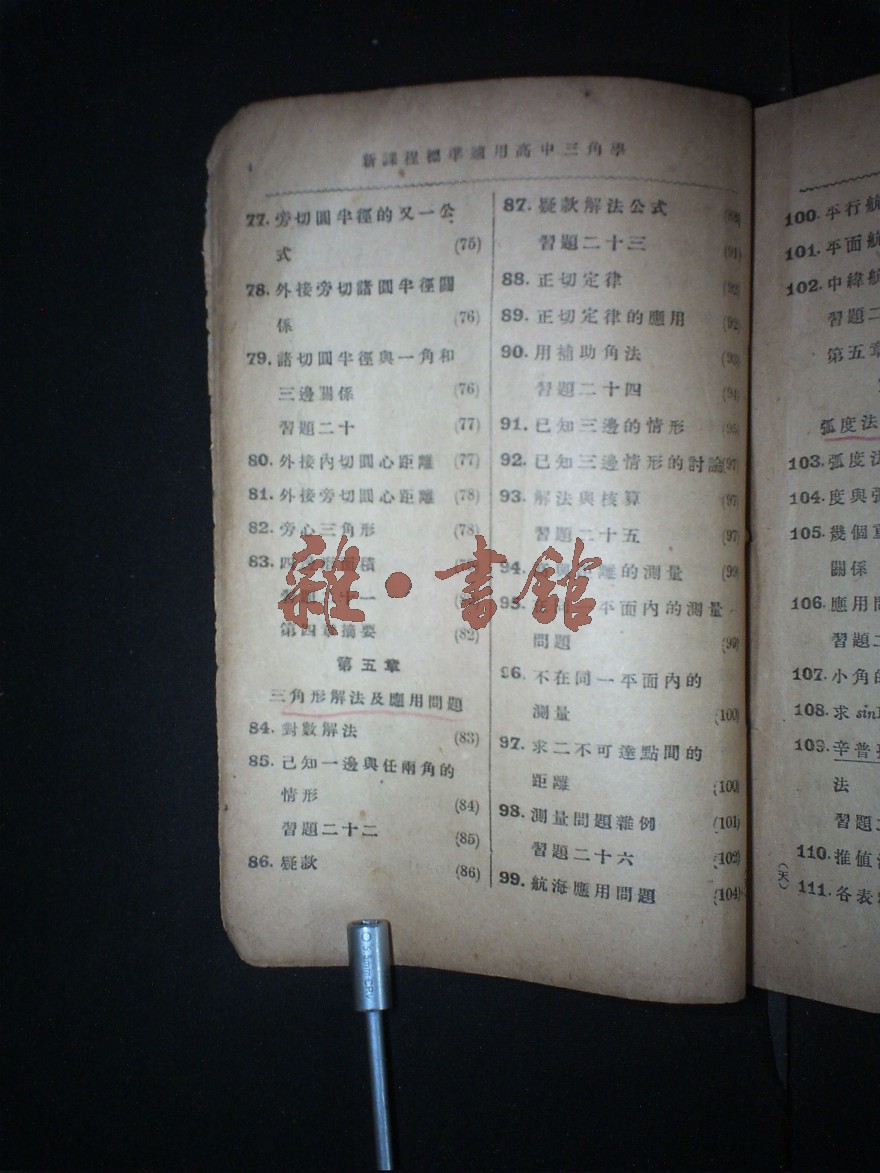 新課程標準適用高中三角學
77. 旁切圓半徑的又一公
式 (75)
78. 外接旁切諸圓半徑關
係 (76)
79. 諸切圓半徑與一角和
三邊關係 (76)
習題二十 (77)
80. 外接內切圓心距離 (77)
81. 外接旁切圓心距離 (78)
82. 旁心三角形 (78)
83.
第四章摘要 (82)
第五章
三角形解法及應用問題
84. 對數解法 (83)
85. 已知一邊與任兩角的
情形 (84)
習題二十二 (85)
86. 疑款 (86)
87. 疑款解法公式
習題二十三 (91)
88. 正切定律 (92)
89. 正切定律的應用 (92)
90. 用補助角法 (93)
習題二十四 (94)
91. 已知三邊的情形 (95)
92. 已知三邊情形的討論 (97)
93. 解法與核算 (97)
習題二十五 (97)
94. 離的測量 (99)
95. 平面內的測量
問題 (99)
96. 不在同一平面內的
測量 (100)
97. 求二不可達點間的
距離 (100)
98. 測量問題雜例 (101)
習題二十六 (102)
99. 航海應用問題 (104)
雜·書館
100. 平行航
101. 平面航
102. 中緯航
習題二
第五章
弧度法
103. 弧度法
104. 度與弧
105. 幾個重
關係
106. 應用問
習題二
107. 小角的
108. 求 sin
109. 辛普
法
習題二
110. 推值
111. 各表
(天)